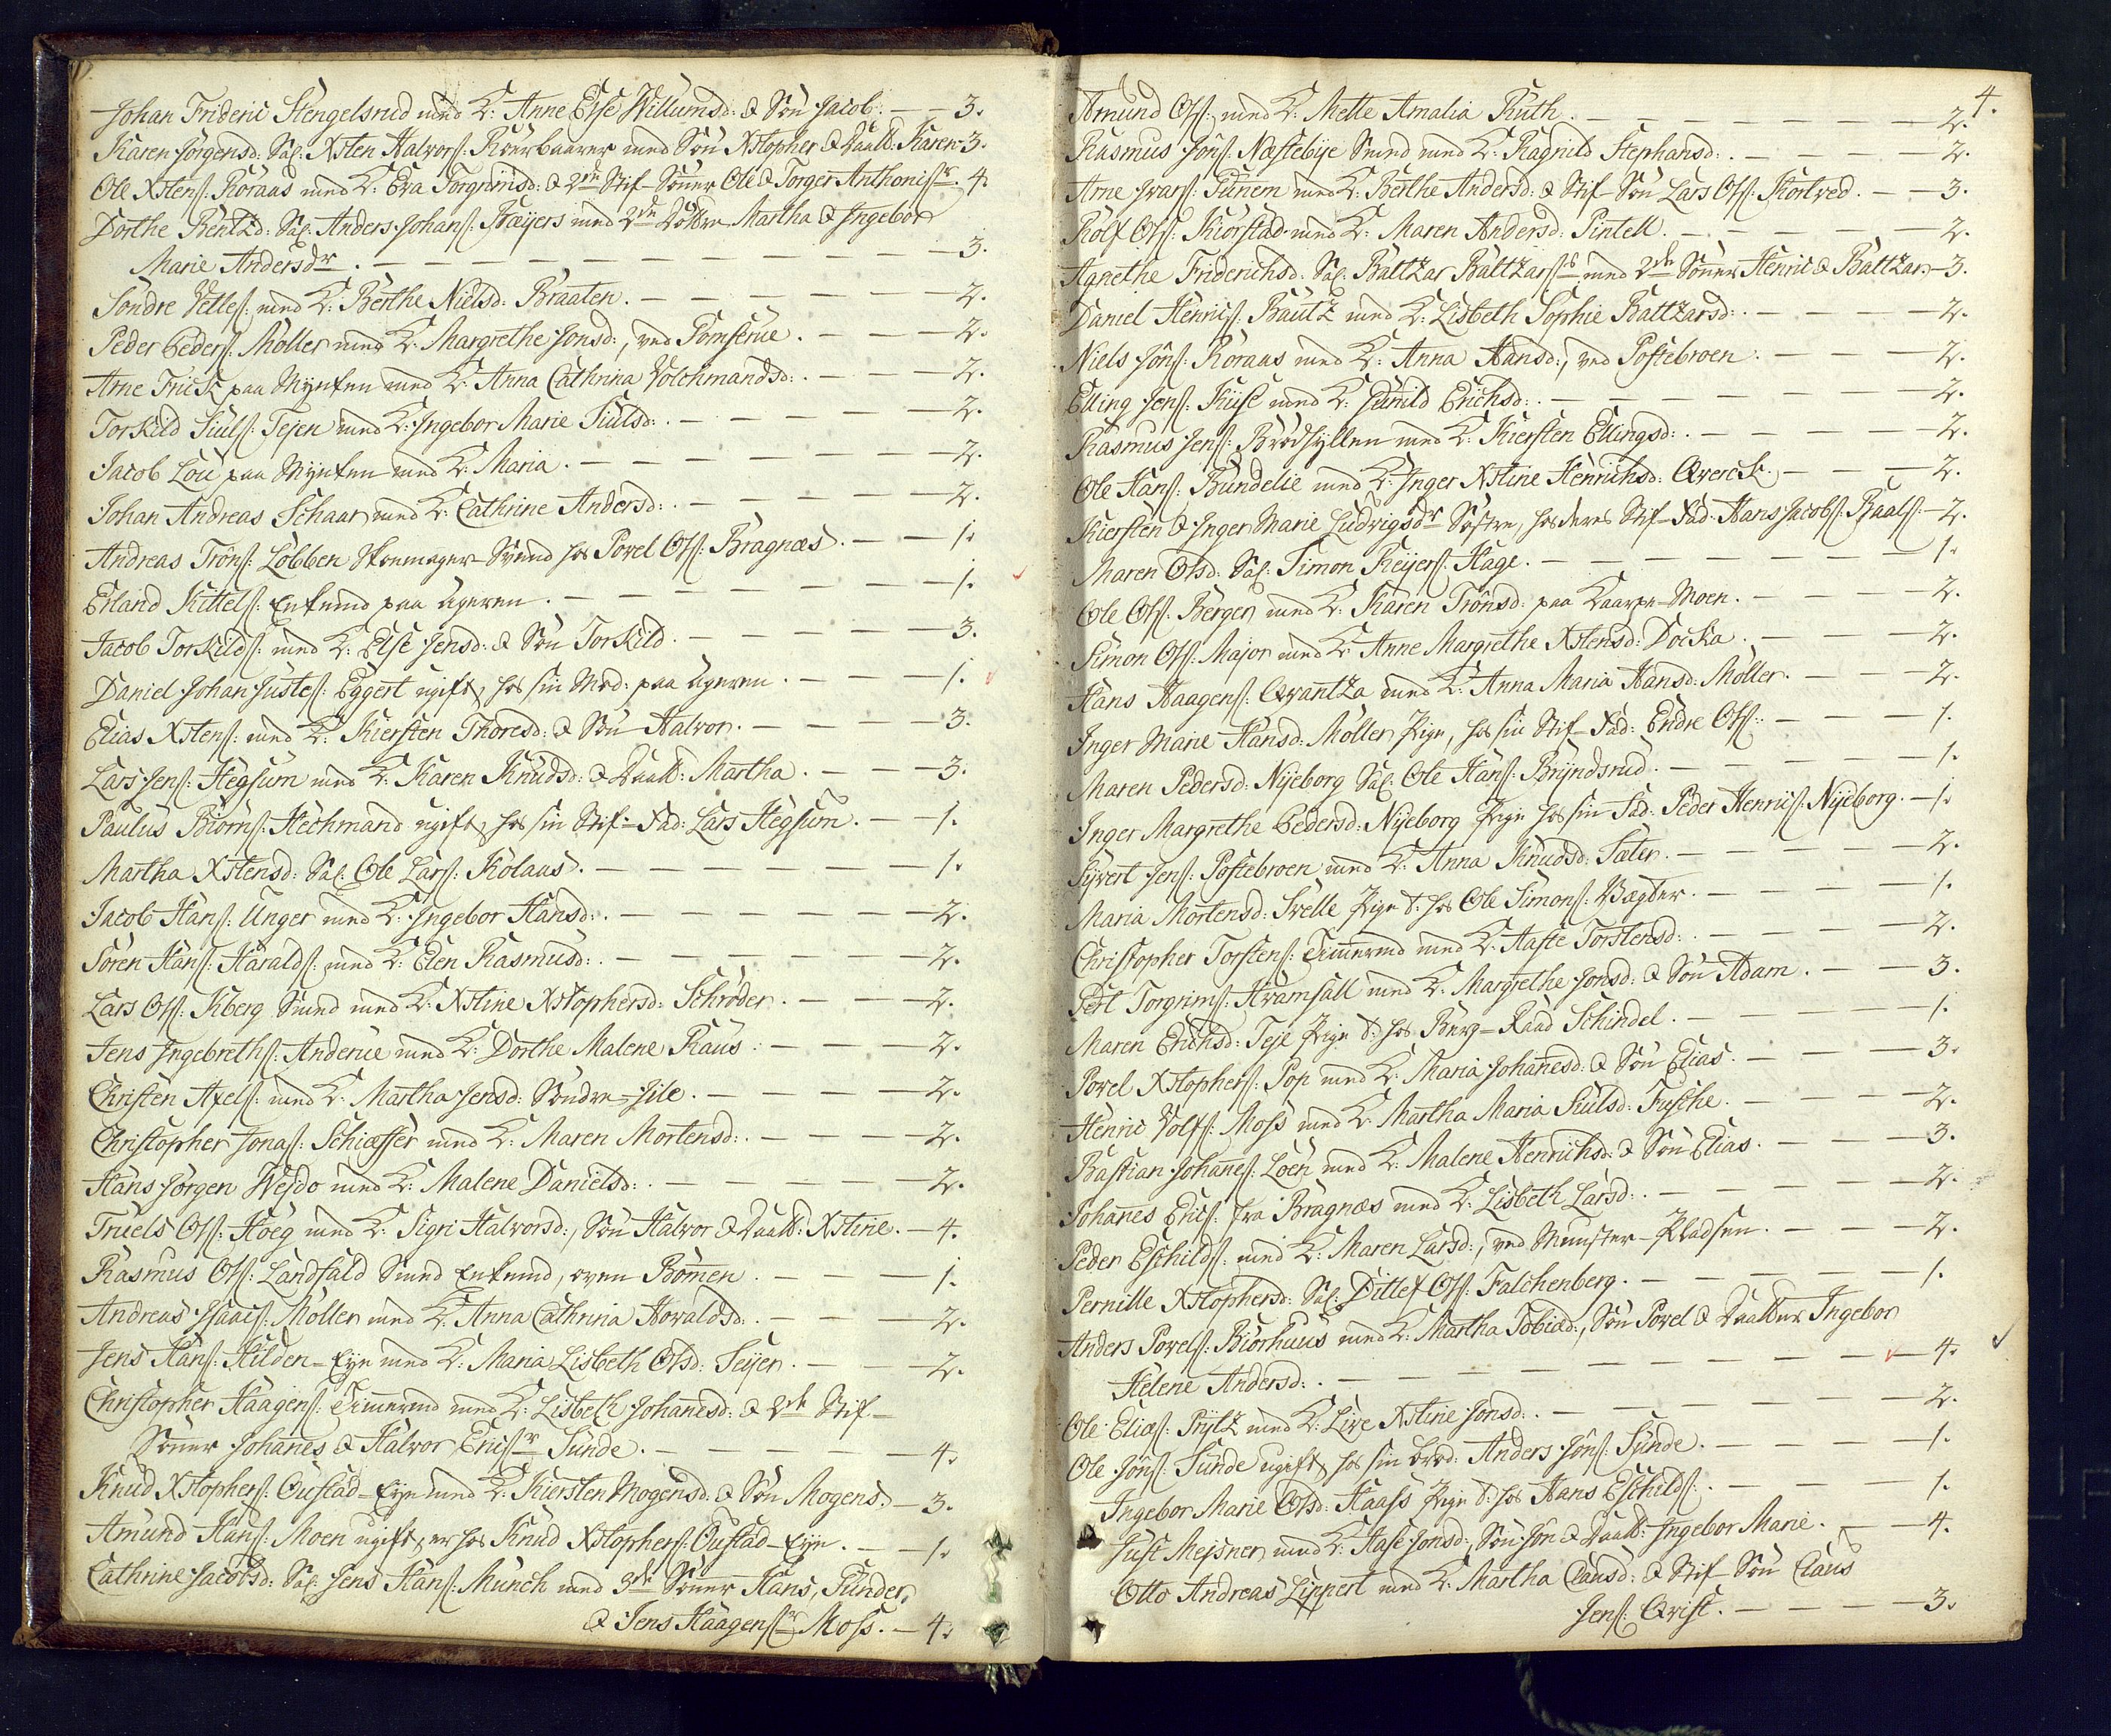 Johan Frideric Stengelsrud med K: Anne Else Willumsd: & Søn Jacob. — — 3.
Karen Jørgensd: Sal. Xsten Halvors: med Søn Xstopher & Daatt: Karen 3.
Ole Xstens: Roraas med K: Eva Torgrimsd: & 2de Stif-Sønner Ole & Torger Anthonisr. 4.
Dorthe Bentzd: Sal. Anders Johans: med 2de Døttre Martha & Ingebor
Marie Andersdr. — — — 3.
Søndre Vetles: med K: Berthe Nielsd: Braaten. — — — 2.
Peder Peders: Møller med K: Margrethe Jonsd:, ved — — — 2.
Arne Frick paa Mynten med K: Anna Cathrina Volchmandsd: . — — — 2.
Torkild Siuls: Tejen med K: Ingebor Marie Siulsd: . — — — 2.
Jacob Lou paa Mynten med K: Maria. — — — 2.
Johan Andreas Schaar med K: Cathrine Andersd: . — — — 2.
Andreas Trons: Løbben Skoemager Svend hos Povel Ols: Bragnæs. — — 1.
Erland Kittels: Enkemd paa Ageren. — — — 1.
Jacob Torkilds: med K: Else Jensd: & Søn Torkild. — — — 3.
Daniel Johan Justes: Eggert ugift, hos sin Mod: paa Ageren. — — — 1.
Elias Xstens: med K: Kiersten Thoresd: & Søn Halvor. — — — 3.
Lars Jens: Hegsum med K: Karen Knudsd: & Daatt: Martha. — — — 3.
Paulus Biørns: Hechmand ugift, hos sin Stif-Fad: Lars Hegsum. — — 1.
Martha Xstensd: Sal. Ole Lars: Kolaas. — — — 1.
Jacob Hans: Unger med K: Ingebor Hansd: . — — — 2.
Søren Hans: Haralds: med K: Elen Rasmusd: . — — — 2.
Lars Ols: Kberg Smed med K: Xstine Xstophersd: Schrøder. — — — 2.
Jens Ingebreths: Anderue med K: Dorthe Malene Raus. — — — 2.
Christen Axels: med K: Martha Jensd: Søndre-Jile. — — — 2.
Christopher Jonas: Schiæffer med K: Maren Mortensd: . — — — 2.
Hans Jørgen Wejdo med K: Malene Danielsd: . — — — 2.
Truels Ols: Hoeg med K: Sigri Halvorsd:, Søn Halvor & Daatt: Xstine. — 4.
Rasmus Ols: Landfald Smed Enkemd, oven Bommen. — — — 1.
Andreas Isaacs: Møller med K: Anna Cathrina Hovaldsd: . — — — 2.
Jens Hans: Hilden-Eje med K: Maria Lisbeth Olsd: Sejer. — — — 2.
Christopher Haagens: Timmermd med K: Lisbeth Johannesd: & 2de Stif-
Sønner Johannes & Halvor Ericsr Sunde. — — — 4.
Knud Xstophers: Oustad-Eje med K: Kiersten Mogensd: & Søn Mogens. — 3.
Amund Hans: Moen ugift, er hos Knud Xstophers: Oustad-Eje. — — 1.
Cathrine Jacobsd: Sal. Jens Hans: Munch med 3de Sønner Hans, Gunder,
& Jens Haagensr Moss. — 4.
4.
Amund Ols: med K: Mette Amalia Ruth. — — — 2.
Rasmus Jøns: Næstebye Smed med K: Ragnild Stephansd: . — — — 2.
Arne Ivars: med K: Berthe Andersd: & Stif-Søn Lars Ols: Kortved. — — 3.
Rolf Ols: Kiørstad med K: Maren Andersd: Pintell. — — — 2.
Agnethe Friderichsd: Sal. Baltzar Baltzars: med 2de Sønner Henric & Baltzar. — 3.
Daniel Henrics: Bautz med K: Lisbeth Sophie Baltzarsd: . — — — 2.
Niels Jøns: Roraas med K: Anna Hansd:, ved Postebroen. — — — 2.
Elling Jens: Kuse med K: Gunild Erichsd: . — — — 2.
Rasmus Jens: Brødhyllen med K: Kiersten Ellingsd: . — — — 2.
Ole Hans: Bundelie med K: Inger Xstine Henrichsd: Qverck. — — — 2.
Kiersten & Inger Marie Ludvigsdr Søstre, hos deres Stif-Fad: Hans Jacobs: Baals: — 2.
Maren Olsd: Sal. Simon Reijers: Hage. — — — 1.
Ole Ols: Berger med K: Karen Tronsd: paa Kaarpe-Moen. — — — 2.
Simon Ols: Major med K: Anne Margrethe Xstensd: Docka. — — — 2.
Hans Haagens: Qvantza med K: Anna Maria Hansd: Møller. — — — 2.
Inger Marie Hansd: Møller Pige, hos sin Stif-Fad: Endre Ols: . — — — 1.
Maren Pedersd: Nyeborg Sal. Ole Hans: Bryndsrud. — — — 1.
Inger Margrethe Pedersd: Nyeborg Pige hos sin Fad: Peder Henrics: Nyeborg. — 1.
Syvert Jens: Postebroen med K: Anna Knudsd: Sæter. — — — 2.
Maria Mortensd: Svelle Pige t: hos Ole Simons: Vægter. — — — 1.
Christopher Torstens: Timmermd med K: Aaste Torstensd: . — — — 2.
Pert Torgrims: Hvamsall med K: Margrethe Jonsd: & Søn Adam. — — — 3.
Maren Erichsd: Teje Pige t: hos Berg-Raad Schindel. — — — 1.
Povel Xstophers: Pop med K: Maria Johannesd: & Søn Elias. — — — 3.
Henric Volfs: Moss med K: Martha Maria Siulsd: Fusche. — — — 2.
Bastian Johannes: Loen med K: Malene Henrichsd: & Søn Elias. — — — 3.
Johannes Erics: fra Bragnæs med K: Lisbeth Larsd: . — — — 2.
Peder Eschilds: med K: Maren Larsd:, ved Munster-Pladsen. — — — 2.
Pernille Xstophersd: Sal. Ditlef Ols: Falchenberg. — — — 1.
Anders Povels: Biørhuus med K: Martha Tobiæd:, Søn Povel & Daatter Ingebor
Helene Andersd: . — — — 4.
Ole Eliæs: Prytz med K: Live Xstine Jonsd: . — — — 2.
Ole Jøns: Sunde ugift, hos sin Brod: Anders Jøns: Sunde. — — — 1.
Ingebor Marie Olsd: Haass Pige t: hos Hans Eschilds: . — — — 1.
Just Mejsner med K: Aase Jonsd:, Søn Jon & Daatt: Ingebor Marie. — — 4.
Otto Andreas Lippert med K: Martha Clausd: & Stif-Søn Claus
Jens: Qvist. — — — 3.